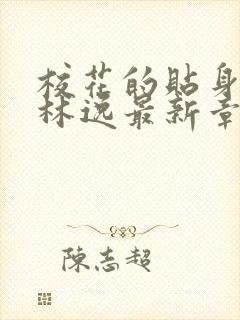 校花的貼身
林逸最新章
陳志超